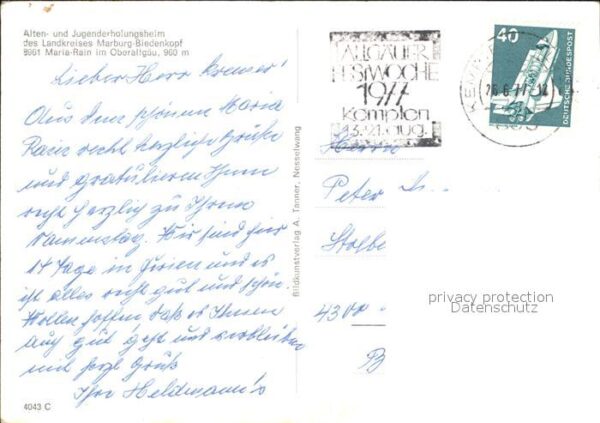 Alten- und Jugenderholungsheim
des Landkreises Marburg-Biedenkopf
8961 Maria-Rain im Oberallgäu, 960 m
Lieber Herr Kremer!
Aus dem schönen Maria
Rain recht herzliche Grüße
und gratulieren Ihnen
recht herzlich zu Ihrem
Namenstag. Wir sind hier
14 Tage in Ferien und es
ist alles recht gut und schön.
Wollen hoffen daß es Ihnen
auch gut geht und verbleiben
mit herzl Gruß
Ihre Heldmann's
4043 C
Bildkunstverlag A. Tanner, Nesselwang
ALLGÄUER
FESTWOCHE
1977
Kempten
13.-21. aug.
40
DEUTSCHE BUNDESPOST
26.6.77
Herrn
Peter
Stolbe
4300
privacy protection
Datenschutz
B